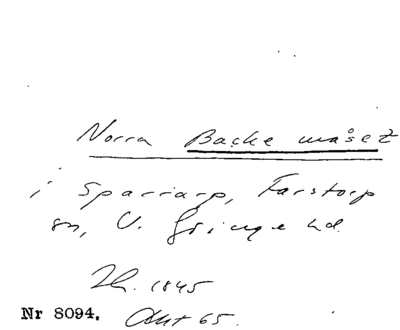 Norra Backe måset
i Sparriarp, Farstorp
sn, V. Göinge hd.
Ih. 1845
Nr 8094. Akt 65.